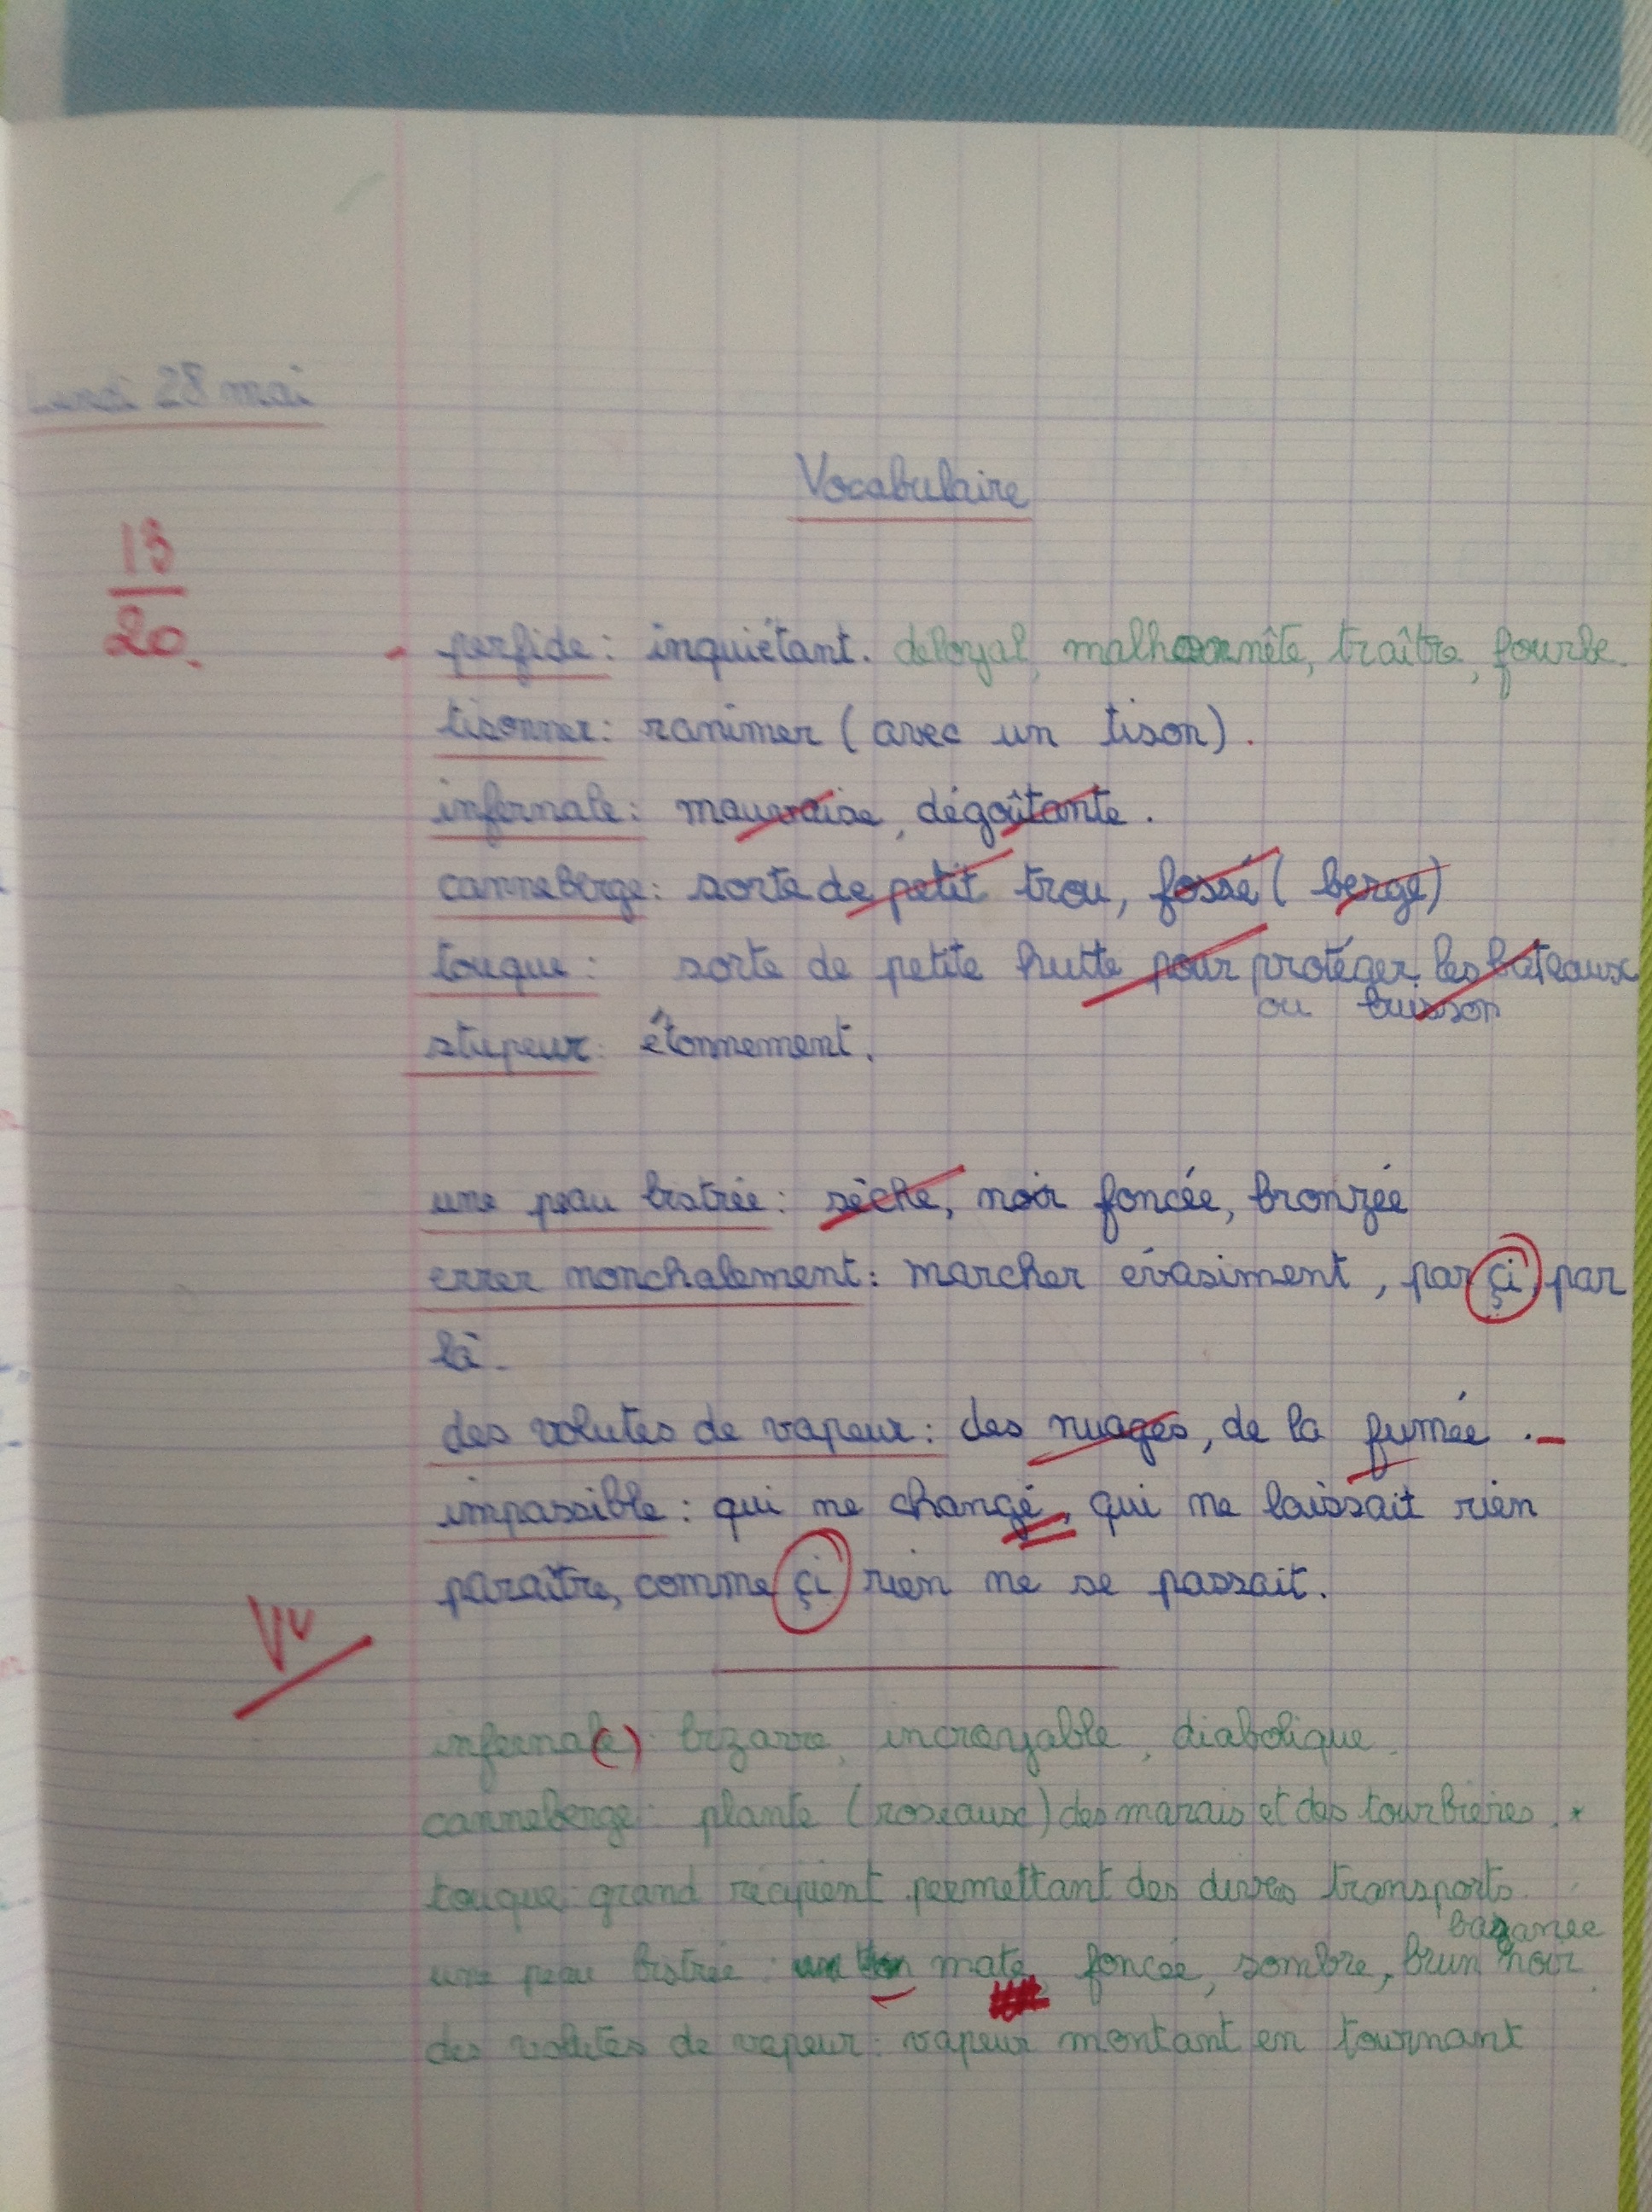 Lundi 28 mai
Vocabulaire
13
20.
perfide : inquiétant. déloyal, malhonnête, traître, fourbe.
tisonner : ranimer (avec un tison).
infernale : mauvaise, dégoûtante.
canneberge : sorte de petit trou, fossé (berge)
touque : sorte de petite hutte pour protéger les bateaux
ou buisson
stupeur : étonnement.
une peau bistrée : sèche, mat foncée, bronzée
errer nonchalamment : marcher évasiment, par çi par
là.
des volutes de vapeur : des nuages, de la fumée.
impassible : qui ne changé, qui ne laissait rien
paraître, comme çi rien ne se passait.
Vu
infernal(e) : bizarre, incroyable, diabolique.
canneberge : plante (roseaux) des marais et des tourbières. *
touque : grand récipient permettant des divers transports.
basanée
une peau bistrée : mate foncée, sombre, brun noir
des volutes de vapeur : vapeur montant en tournant